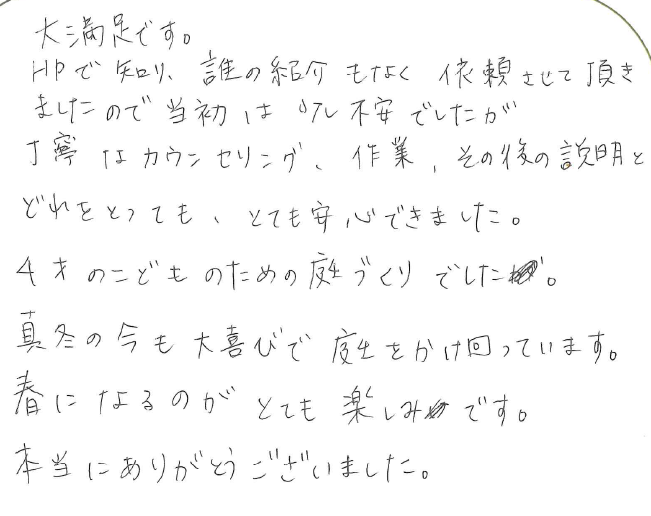 大満足です。
HPで知り、誰の紹介もなく依頼させて頂き
ましたので当初は少し不安でしたが
丁寧なカウンセリング、作業、その後の説明と
どれをとっても、とても安心できました。
4才のこどものための庭づくりでした。
真冬の今も大喜びで庭をかけ回っています。
春になるのがとても楽しみです。
本当にありがとうございました。